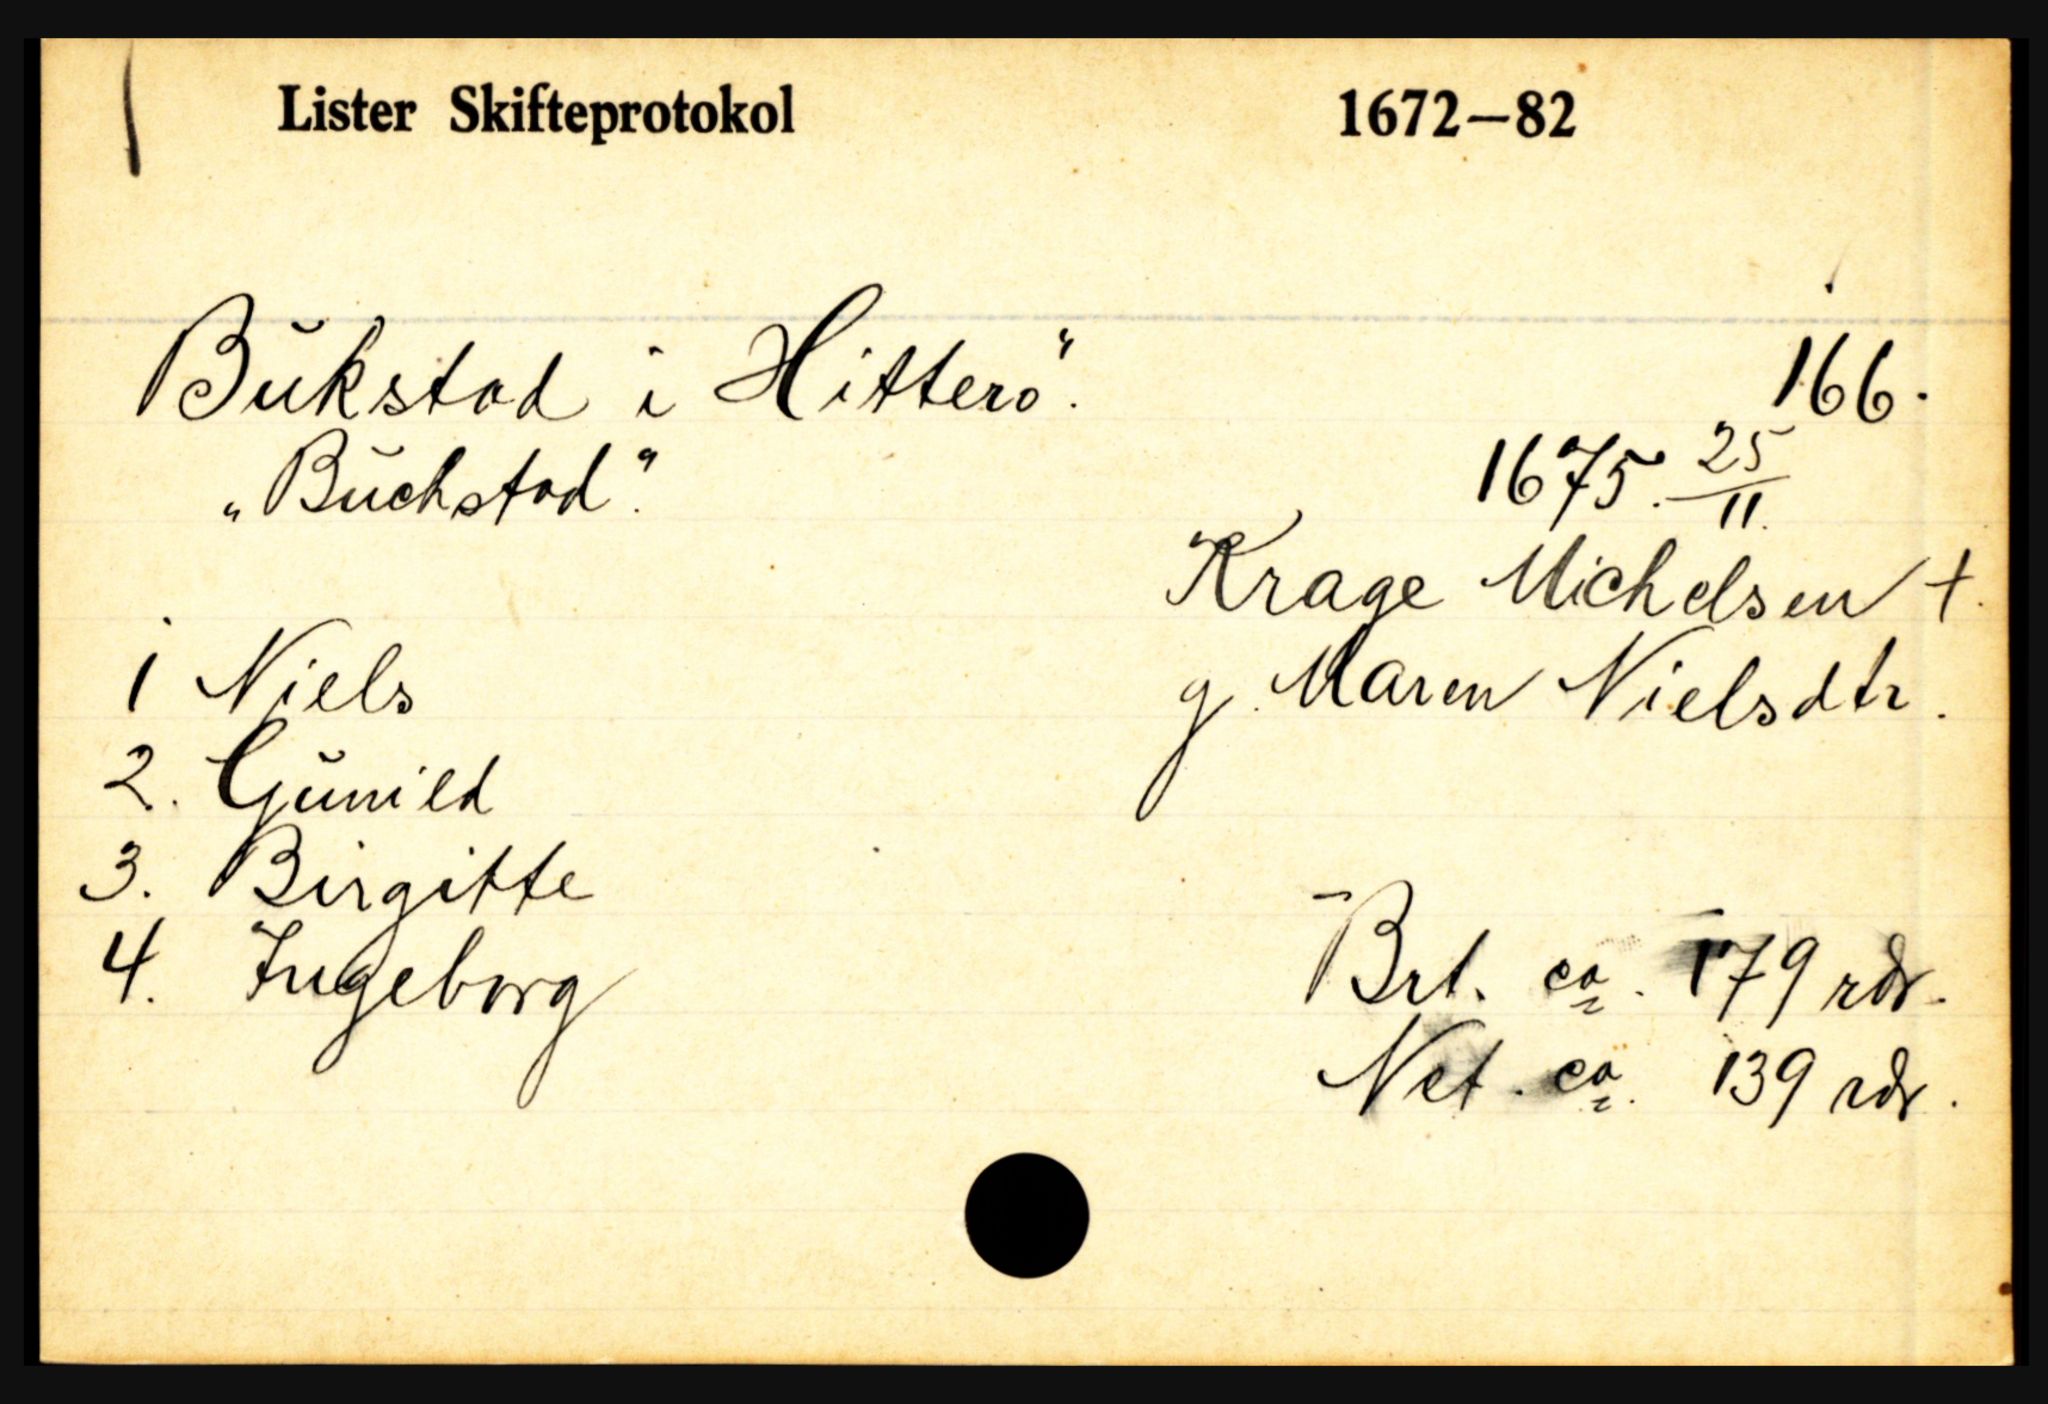 Lister Skifteprotokol 1672—82
Bukstad i Hitterö. 166.
„Buchstad“. 1675. 25/11.
Krage Michelsen †.
1 Niels g. Maren Nielsdtr.
2. Gunild
3. Birgitte
4. Ingeborg Brt. ca. 179 rdr.
Net. ca. 139 rdr.